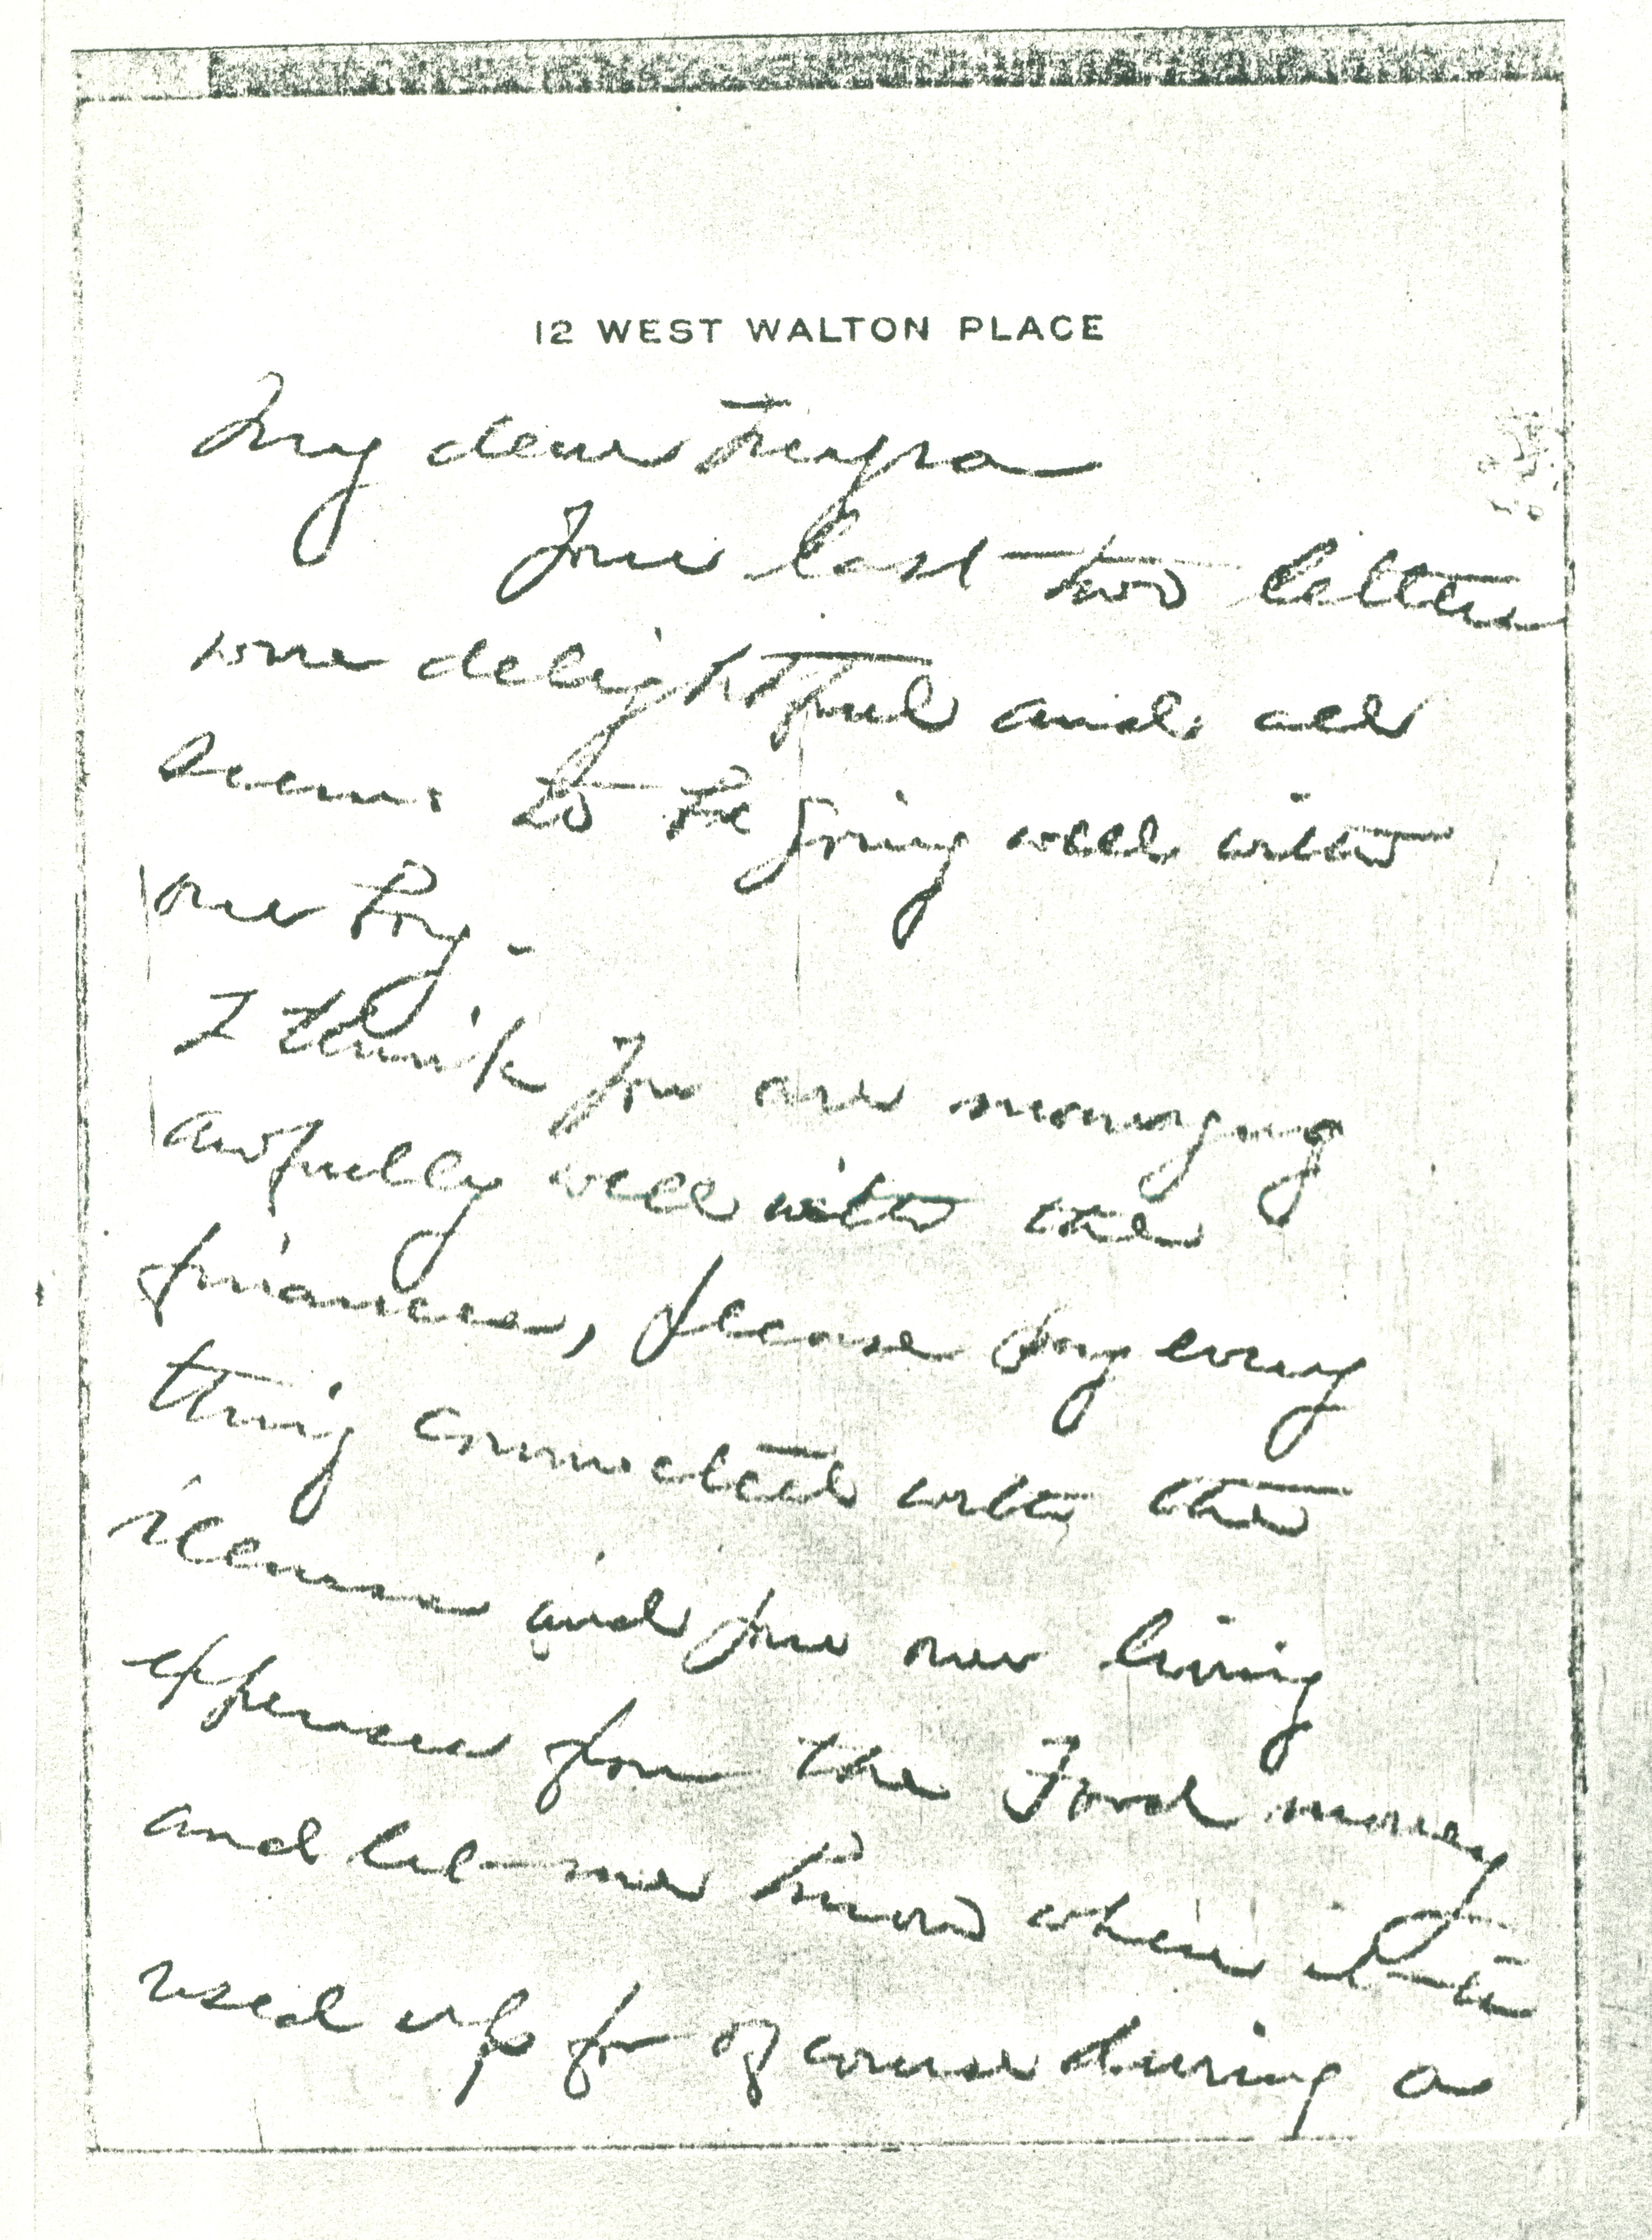 12 WEST WALTON PLACE
My dear Freyra
Your last two letters
were delightful and all
seems to be going well with
our boy -
I think you are managing
awfully well with the
finances, please pay every
thing connected with the
and for our living
expenses from the Ford money
and let me know when it is
used up for of course during a